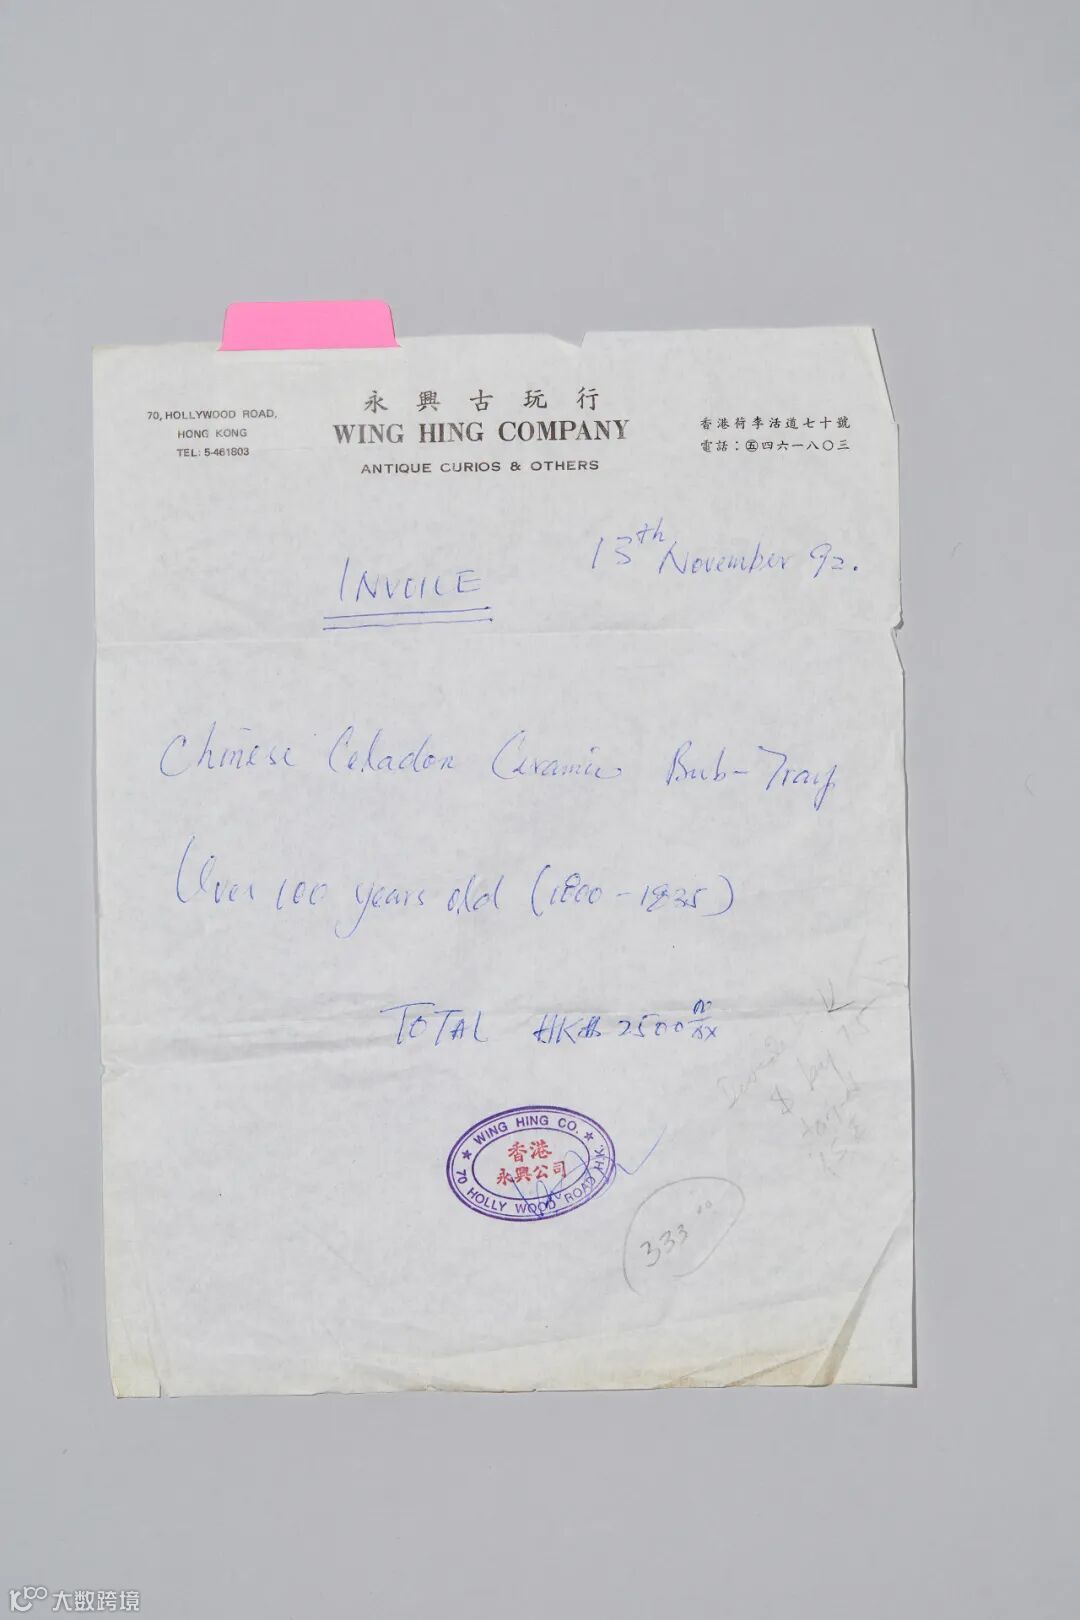 永興古玩行
WING HING COMPANY
ANTIQUE CURIOS & OTHERS
70, HOLLYWOOD ROAD,
HONG KONG
TEL: 5-461803
香港荷李活道七十號
電話：㊄四六一八〇三
13th November 92.
INVOICE
Chinese Celadon Ceramic Bub-Tray
Over 100 years old (1800-1835)
TOTAL HK$ 2500
WING HING CO.
香港
永興公司
70 HOLLY WOOD ROAD H.K.
333.00
大数跨境